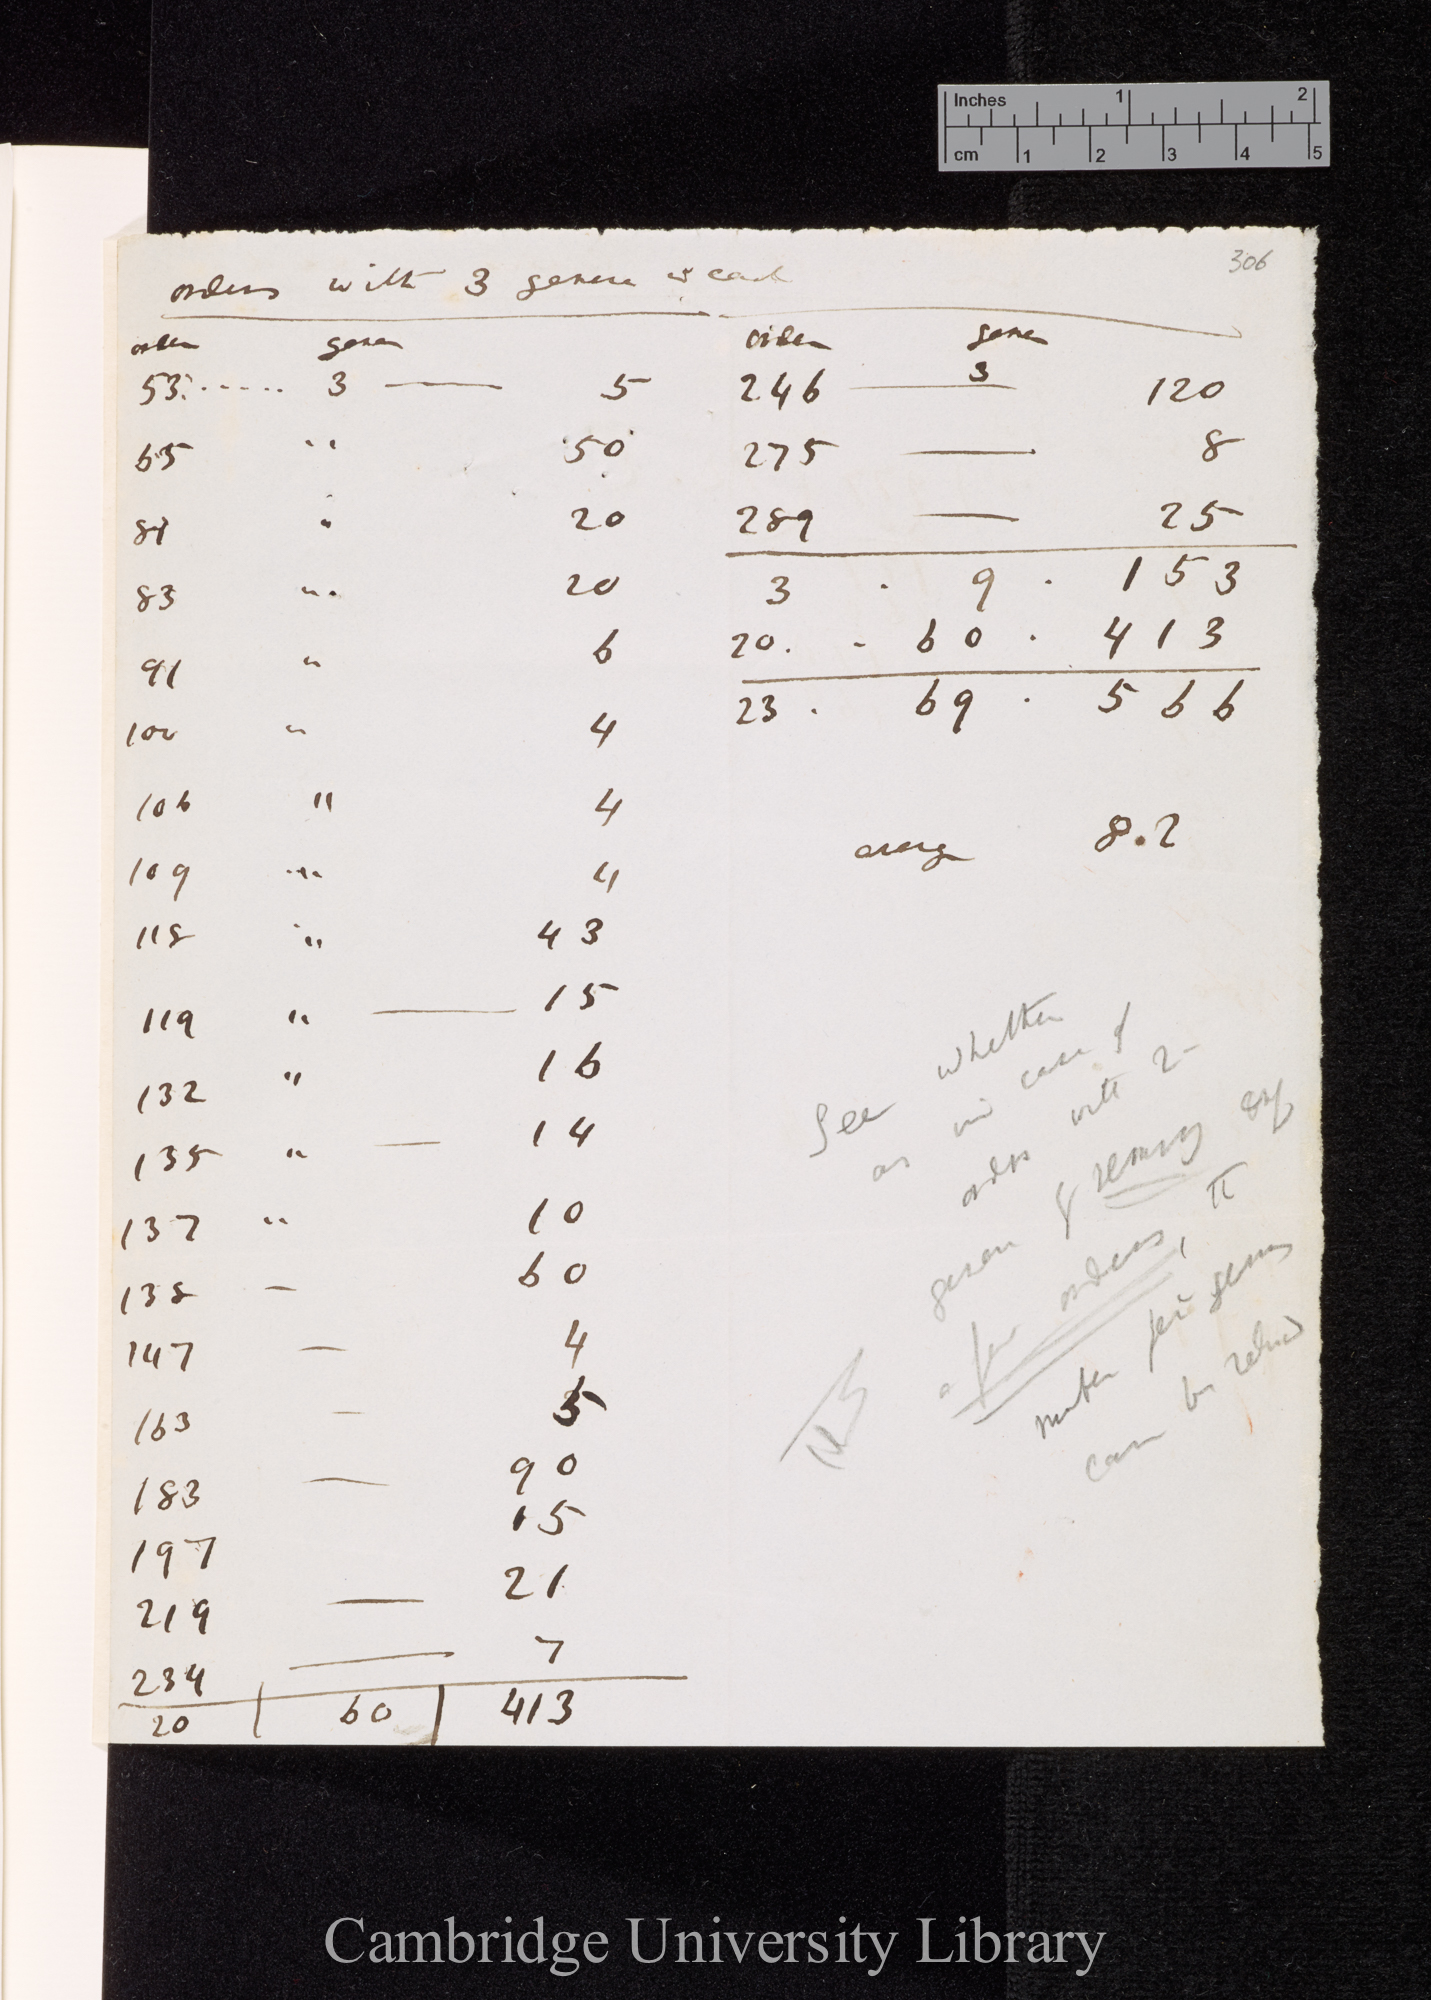 Inches 1 2
cm 1 2 3 4 5
306
orders with 3 genera in each
order genera
53. 3 — 5
65 " 50
81 " 20
83 " 20
91 " 6
100 " 4
106 " 4
109 " 4
118 " 43
119 " — 15
132 " 16
135 " — 14
137 " 10
138 — 60
147 — 4
163 — 5
183 — 90
197 15
219 — 21
234 — 7
20 | 60 | 413
order genera
246 — 3 120
275 — 8
289 — 25
3 . 9 . 153
20. - 60 . 413
23 . 69 . 566
average 8.2
See whether
as in case of
orders with 2
genera & removing
a few orders,
number per genus
can be reduced
NB
Cambridge University Library